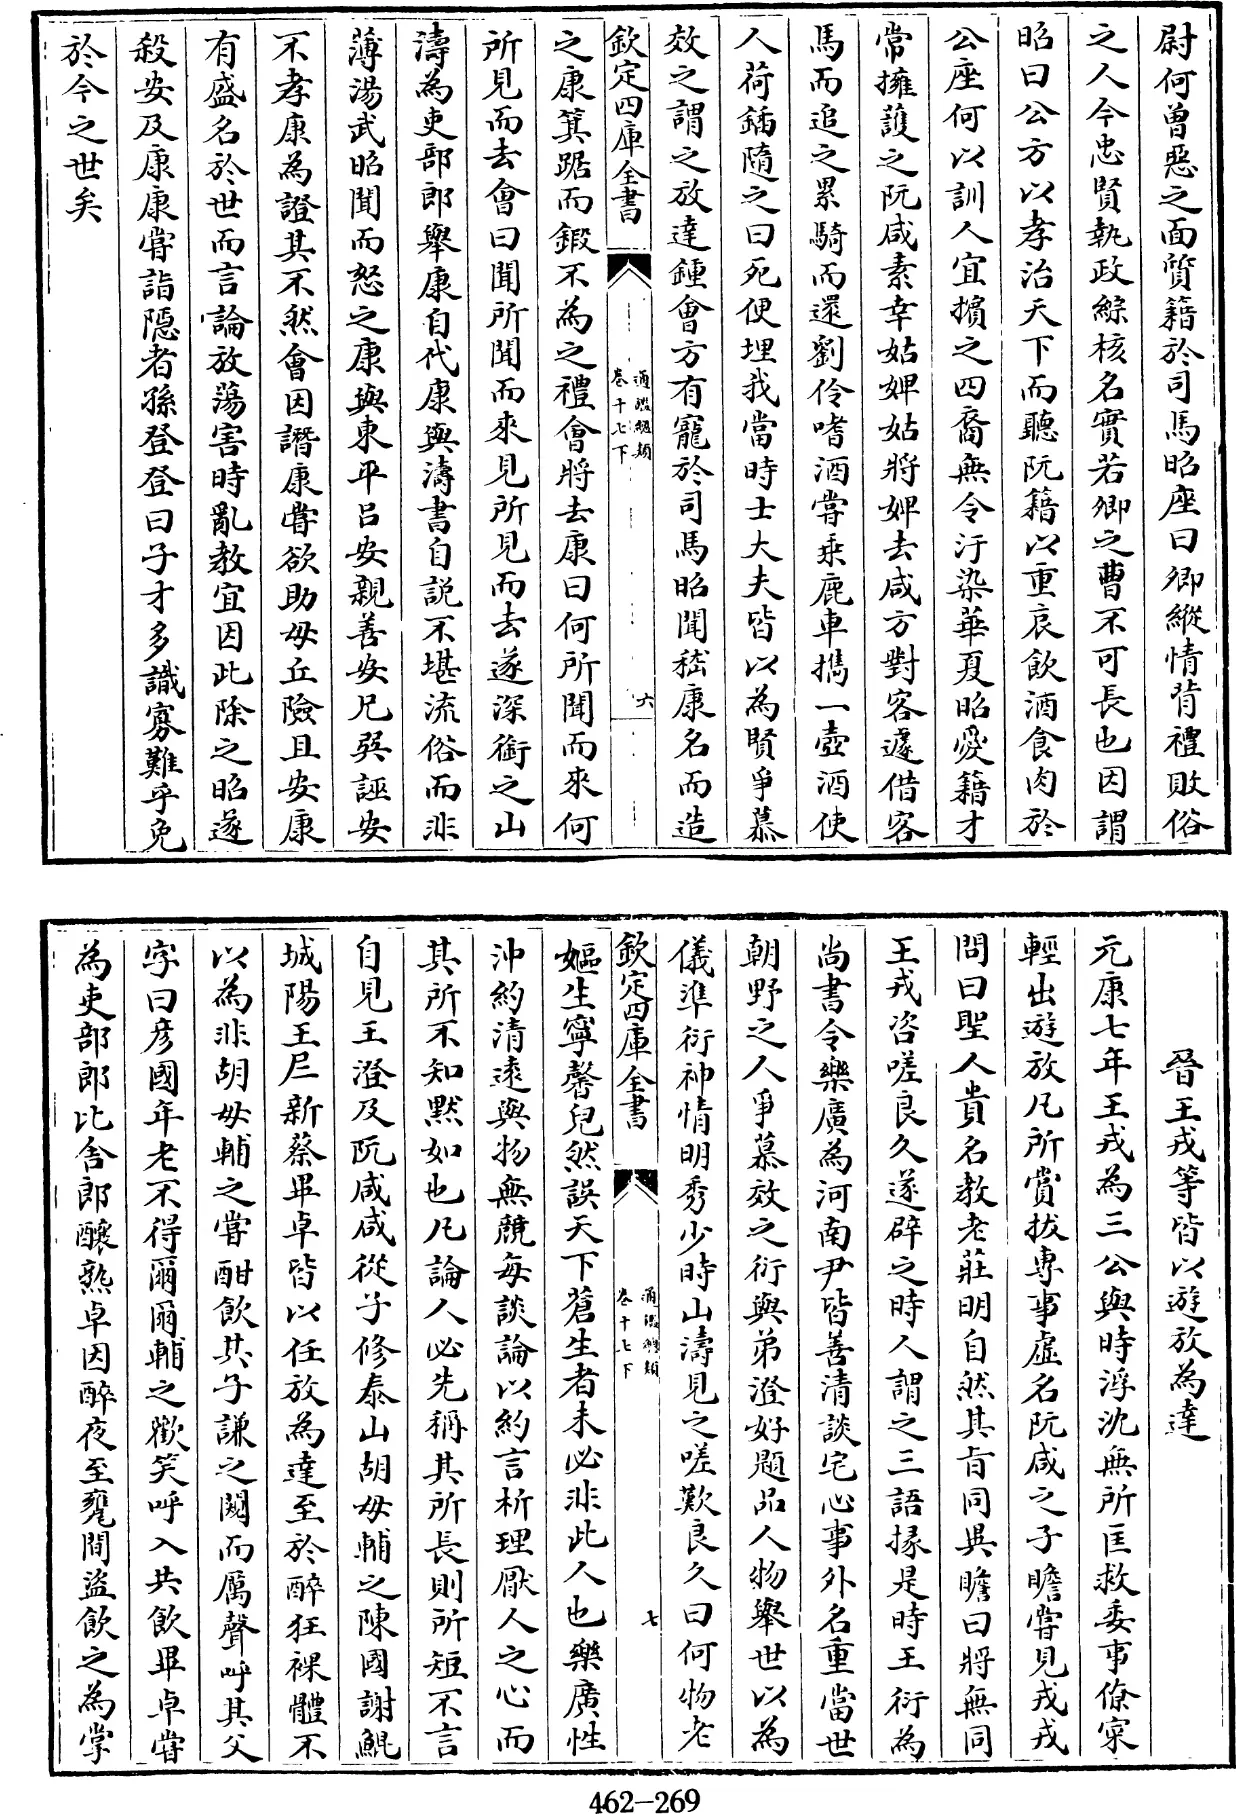 尉何曾惡之面質籍於司馬昭座曰卿縱情背禮敗俗
之人今忠賢執政綜核名實若卿之曹不可長也因謂
昭曰公方以孝治天下而聽阮籍以重哀飲酒食肉於
公座何以訓人宜擯之四裔無令汙染華夏昭愛籍才
常擁護之阮咸素幸姑婢姑將婢去咸方對客遽借客
馬而追之累騎而還劉伶嗜酒嘗乗鹿車攜一壺酒使
人荷鍤隨之曰死便埋我當時士大夫皆以為賢爭慕
效之謂之放達鍾會方有寵於司馬昭聞嵇康名而造
欽定四庫全書
通鑑總類
卷十七下
六
之康箕踞而鍛不為之禮會將去康曰何所聞而來何
所見而去會曰聞所聞而來見所見而去遂深銜之山
濤為吏部郎舉康自代康與濤書自說不堪流俗而非
薄湯武昭聞而怒之康與東平呂安親善安兄巽誣安
不孝康為證其不然會因譖康嘗欲助毋丘儉且安康
有盛名於世而言論放蕩害時亂教宜因此除之昭遂
殺安及康康嘗詣隱者孫登登曰子才多識寡難乎免
於今之世矣
晉王戎等皆以遊放為達
元康七年王戎為三公與時浮沈無所匡救委事僚寀
輕出遊放凡所賞拔專事虛名阮咸之子瞻嘗見戎戎
問曰聖人貴名教老莊明自然其旨同異瞻曰將無同
王戎咨嗟良久遂辟之時人謂之三語掾是時王衍為
尚書令樂廣為河南尹皆善清談宅心事外名重當世
朝野之人爭慕效之衍與弟澄好題品人物舉世以為
儀準衍神情明秀少時山濤見之嗟歎良久曰何物老
欽定四庫全書
通鑑總類
卷十七下
七
嫗生寧馨兒然誤天下蒼生者未必非此人也樂廣性
沖約清遠與物無競每談論以約言析理厭人之心而
其所不知默如也凡論人必先稱其所長則所短不言
自見王澄及阮咸咸從子修泰山胡毋輔之陳國謝鯤
城陽王尼新蔡畢卓皆以任放為達至於醉狂裸體不
以為非胡毋輔之嘗酣飲其子謙之闚而厲聲呼其父
字曰彥國年老不得爾爾輔之歡笑呼入共飲畢卓嘗
為吏部郎比舍郎釀熟卓因醉夜至甕間盜飲之為掌
462-269